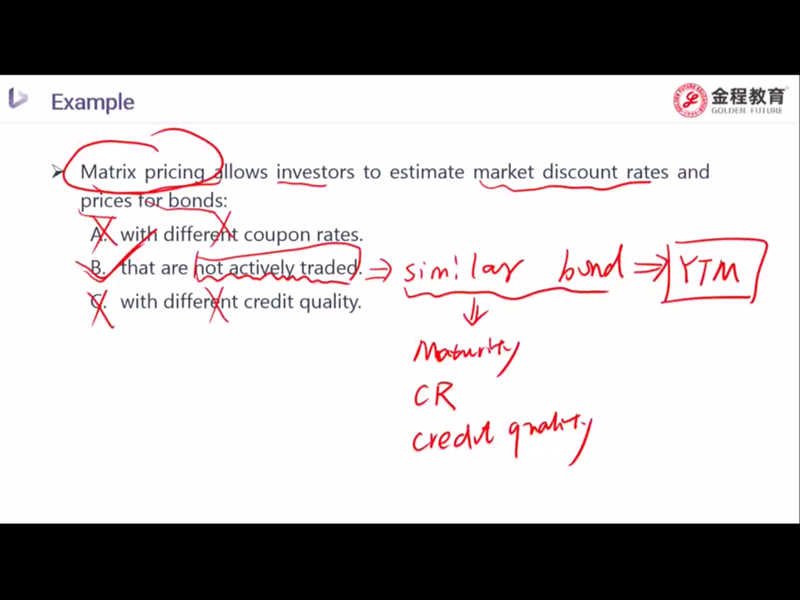 Example
金程教育
GOLDEN FUTURE
Matrix pricing allows investors to estimate market discount rates and
prices for bonds:
A. with different coupon rates.
B. that are not actively traded. ⇒ similar bond ⇒ YTM
C. with different credit quality.
Maturity
CR
credit quality